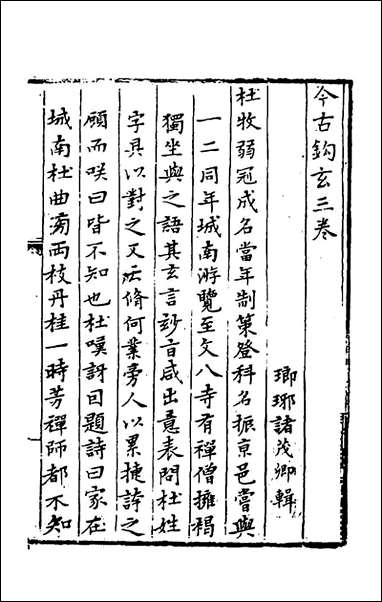 今古鈎玄三卷
瑯琊諸茂卿輯
杜牧弱冠成名當年制策登科名振京邑嘗與
一二同年城南游覽至文八寺有禪僧擁褐
獨坐與之語其玄言妙旨咸出意表問杜姓
字具以對之又云脩何業旁人以累捷誇之
顧而咲曰皆不知也杜嘆訝因題詩曰家在
城南杜曲旁兩枝丹桂一時芳禪師都不知